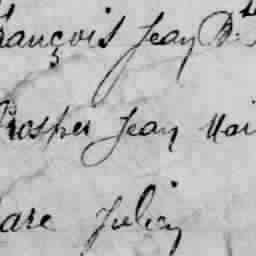 françois Jean B.te
Prosper Jean Mai
are Julien